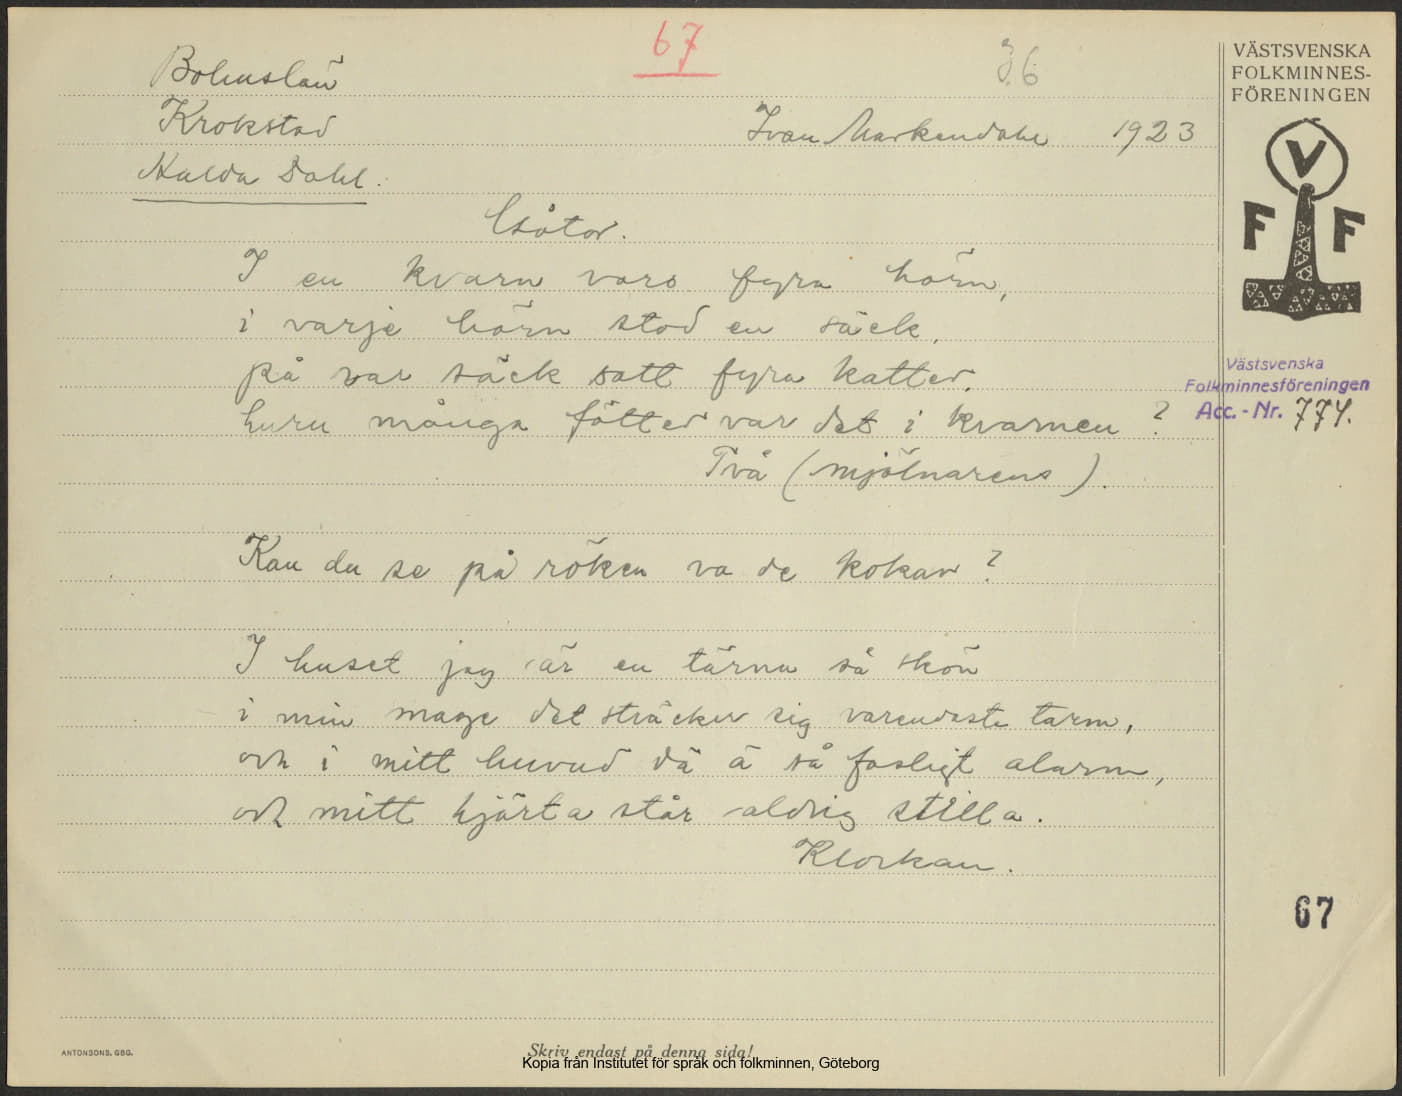 67
J. 6
Bohuslän
Krokstad
Ivan Markendahl 1923
Hulda Dahl.
Gåtor.
I en kvarn vors fyra hörn,
i varje hörn stod en säck,
på var säck satt fyra katter,
huru många fötter var det i kvarnen ?
Två (mjölnarens).
Kan du se på röken va de kokar ?
I huset jag är en tärna så skön
i min mage det sträcker sig varendaste tarm,
och i mitt huvud dä ä så fasligt alarm,
och mitt hjärta står aldrig stilla.
Klockan.
VÄSTSVENSKA
FOLKMINNES-
FÖRENINGEN
V
F F
Västsvenska
Folkminnesföreningen
Acc. - Nr. 774.
67
ANTONSONS, GBG.
Skriv endast på denna sida!
Kopia från Institutet för språk och folkminnen, Göteborg